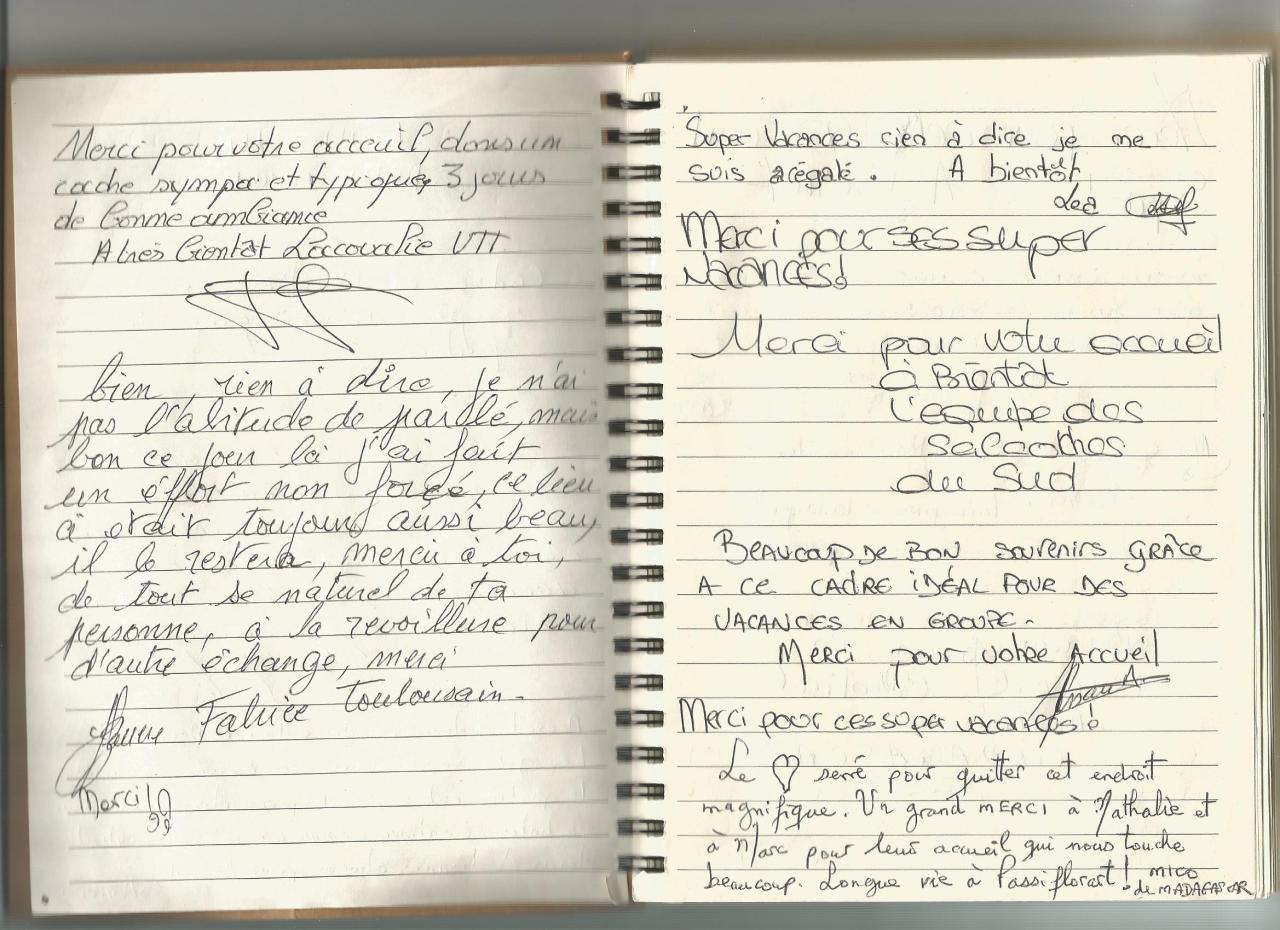 Merci pour votre acceuil, dans un
cadre sympa et typique, 3 jours
de bonne ambiance
A très bientôt VTT
bien, rien à dire, je n'ai
pas l'abitude de parlé, mais
bon ce jour là j'ai fait
un éffort non forcé, ce lieu
à était toujours aussi beau,
il le restera, mercie à toi,
de tout se naturel de ta
personne, à la revoilleure pour
d'autre échange, merci
Fabrice Toulousain -
Merci!
Super Vacances rien à dire je me
suis régalé. A bientôt
Léa
Merci pour ses super
vacances!
Merci pour votre accueil
à Bientôt
L'equipe des
du Sud
BEAUCOUP DE BON SOUVENIRS GRÂCE
A CE CADRE IDÉAL POUR DES
VACANCES EN GROUPE.
MERCI pour votre Accueil
Merci pour ces super vacances!
Le ♡ serré pour quitter cet endroit
magnifique. Un grand MERCI à Nathalie et
à Marc pour leur accueil qui nous touche
beaucoup. Longue vie à Passiflorart! MICO
de MADAGASCAR